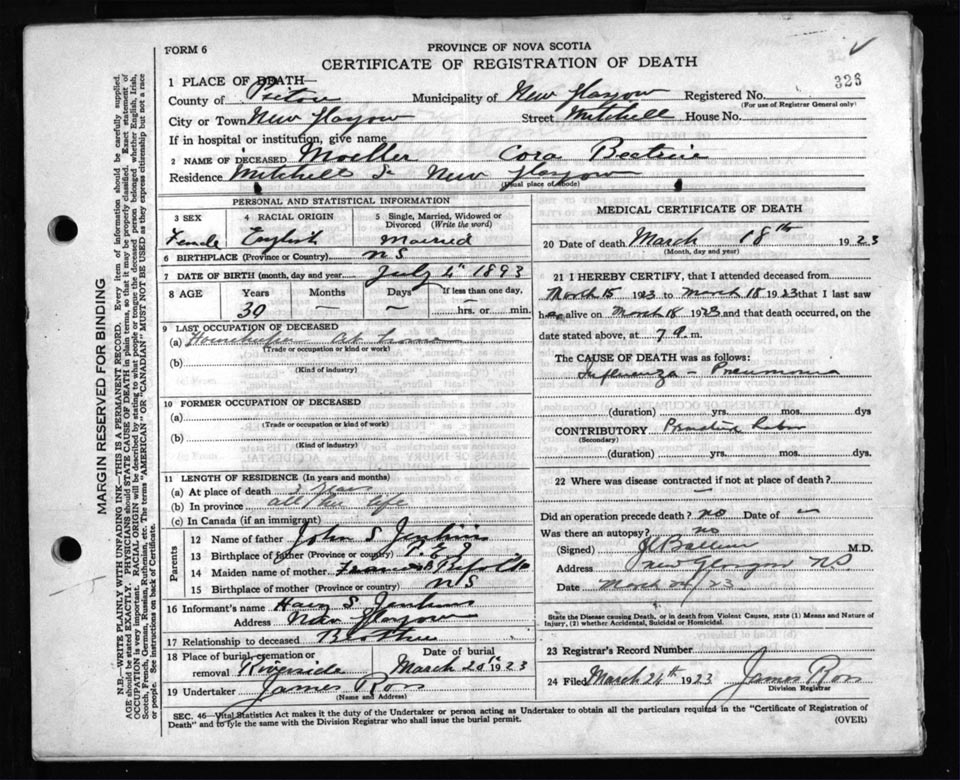 FORM 6
PROVINCE OF NOVA SCOTIA
CERTIFICATE OF REGISTRATION OF DEATH
326
1 PLACE OF DEATH—
County of Pictou Municipality of New Glasgow Registered No.
(For use of Registrar General only)
City or Town New Glasgow Street Mitchell House No.
If in hospital or institution, give name
2 NAME OF DECEASED Moeller Cora Beatrice
Residence Mitchell St New Glasgow
(Usual place of abode)
PERSONAL AND STATISTICAL INFORMATION
3 SEX 4 RACIAL ORIGIN 5 Single, Married, Widowed or Divorced (Write the word)
Female English Married
6 BIRTHPLACE (Province or Country) N S
7 DATE OF BIRTH (month, day and year) July 4th 1893
8 AGE Years Months Days If less than one day,
30 — — hrs. or min.
9 LAST OCCUPATION OF DECEASED
(a) Housekeeper at home
(Trade or occupation or kind of work)
(b)
(Kind of industry)
10 FORMER OCCUPATION OF DECEASED
(a)
(Trade or occupation or kind of work)
(b)
(Kind of industry)
11 LENGTH OF RESIDENCE (In years and months)
(a) At place of death years
(b) In province all her life
(c) In Canada (if an immigrant)
Parents
12 Name of father John S Jenkins
13 Birthplace of father (Province or country) P.E.I
14 Maiden name of mother
15 Birthplace of mother (Province or country) N S
16 Informant's name Harry S Jenkins
Address New Glasgow
17 Relationship to deceased Brother
18 Place of burial, cremation or removal Riverside Date of burial March 20th 1923
19 Undertaker James Ross
(Name and Address)
MEDICAL CERTIFICATE OF DEATH
20 Date of death March 18th 1923
(Month, day and year)
21 I HEREBY CERTIFY, that I attended deceased from
March 15 1923 to March 18 1923 that I last saw
her alive on March 18 1923 and that death occurred, on the
date stated above, at 7 a. m.
The CAUSE OF DEATH was as follows:
Influenza - Pneumonia
(duration) yrs. mos. dys
CONTRIBUTORY Labor
(Secondary)
(duration) yrs. mos. dys.
22 Where was disease contracted if not at place of death?
—
Did an operation precede death? no Date of —
Was there an autopsy? no
(Signed) M.D.
Address New Glasgow NS
Date March 24/23
State the Disease causing Death, or in death from Violent Causes, state (1) Means and Nature of Injury, (2) whether Accidental, Suicidal or Homicidal.
23 Registrar's Record Number
24 Filed March 24th 1923 James Ross
Division Registrar
SEC. 46—Vital Statistics Act makes it the duty of the Undertaker or person acting as Undertaker to obtain all the particulars required in the "Certificate of Registration of
Death" and to fyle the same with the Division Registrar who shall issue the burial permit.
(OVER)
MARGIN RESERVED FOR BINDING
N.B.—WRITE PLAINLY WITH UNFADING INK—THIS IS A PERMANENT RECORD. Every item of information should be carefully supplied.
AGE should be stated EXACTLY. PHYSICIANS should STATE CAUSE OF DEATH in plain terms, so that it may be properly classified. Exact statement of
OCCUPATION is very important. RACIAL ORIGIN will be described by stating to what people or tongue the deceased person belonged whether English, Irish,
Scotch, French, German, Russian, Ruthenian, etc. The terms "AMERICAN" or "CANADIAN" MUST NOT BE USED as they express citizenship but not a race
or people. See instructions on back of Certificate.